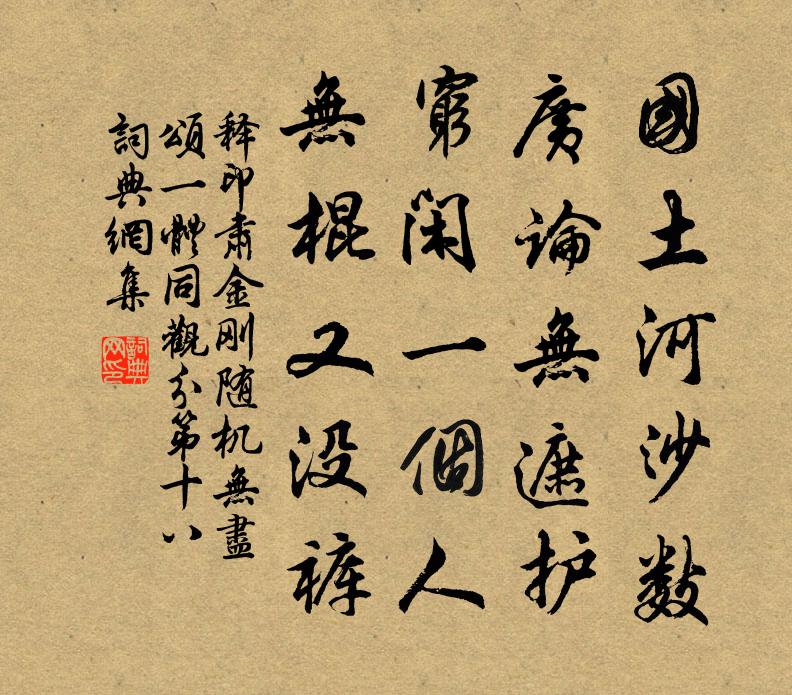 國土河沙数
廣論無遮护
窮閑一個人
無棍又没裤
释印肃金刚随机無盡
頌一體同觀分第十八
詞典網集
詞典网印